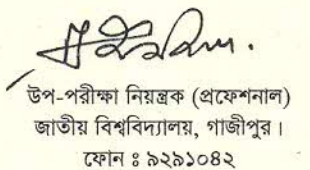 উপ-পরীক্ষা নিয়ন্ত্রক (প্রফেশনাল)
জাতীয় বিশ্ববিদ্যালয়, গাজীপুর।
ফোন ঃ ৯২৯১০৪২